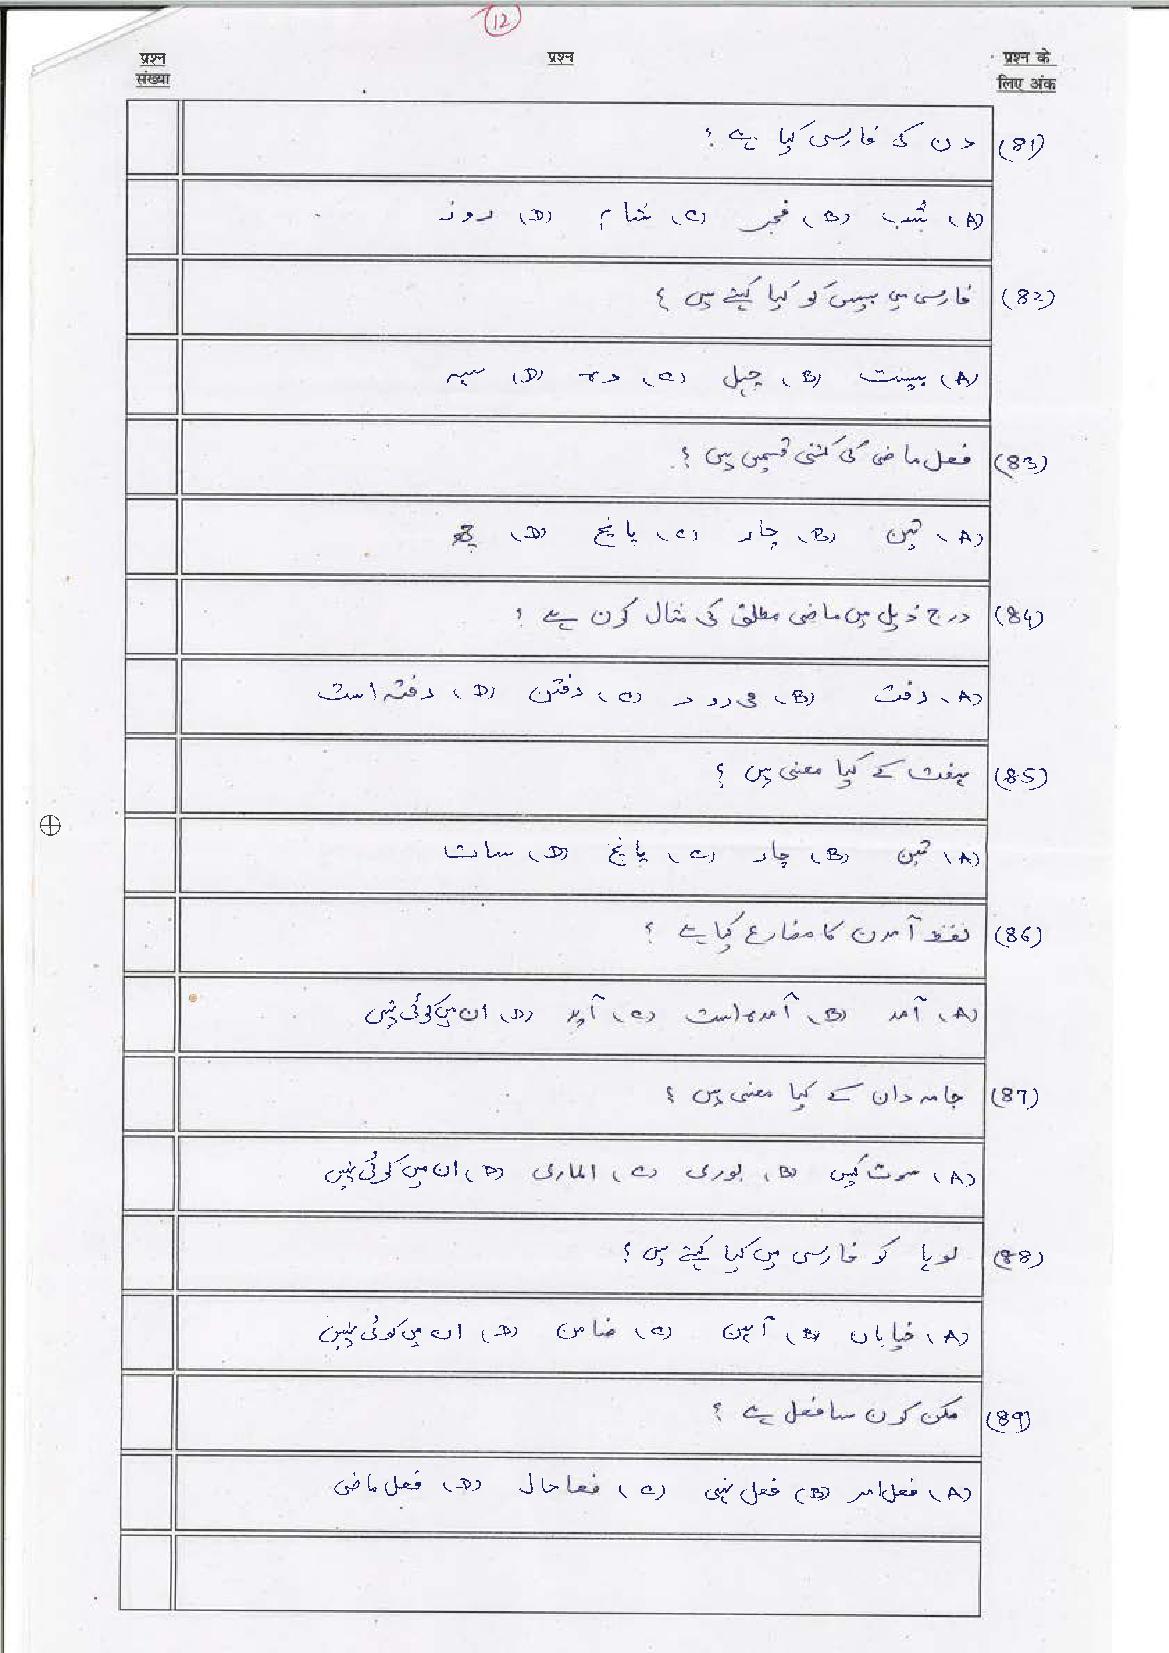 12
प्रश्न संख्या
प्रश्न
प्रश्न के लिए अंक
(81) دن کی فارسی کیا ہے ؟
(A) شب (B) فجر (C) شام (D) روز
(82) فارسی میں بیس کو کیا کہتے ہیں ؟
(A) بیست (B) چہل (C) دہ (D) سیہ
(83) فعل ماضی کی کتنی قسمیں ہیں ؟
(A) تین (B) چار (C) پانچ (D) چھ
(84) درج ذیل میں ماضی مطلق کی مثال کون ہے ؟
(A) رفت (B) می رود (C) رفتن (D) رفتہ است
(85) ہفت کے کیا معنی ہیں ؟
(A) تین (B) چار (C) پانچ (D) سات
(86) لفظ آمدن کا مضارع کیا ہے ؟
(A) آمد (B) آمدہ است (C) آید (D) ان میں کوئی نہیں
(87) جامہ دان کے کیا معنی ہیں ؟
(A) سوٹ کیس (B) بوری (C) الماری (D) ان میں کوئی نہیں
(88) لوہا کو فارسی میں کیا کہتے ہیں ؟
(A) خیاباں (B) آہن (C) ضامن (D) ان میں کوئی نہیں
(89) مکن کون سا فعل ہے ؟
(A) فعل امر (B) فعل نہی (C) فعل حال (D) فعل ماضی